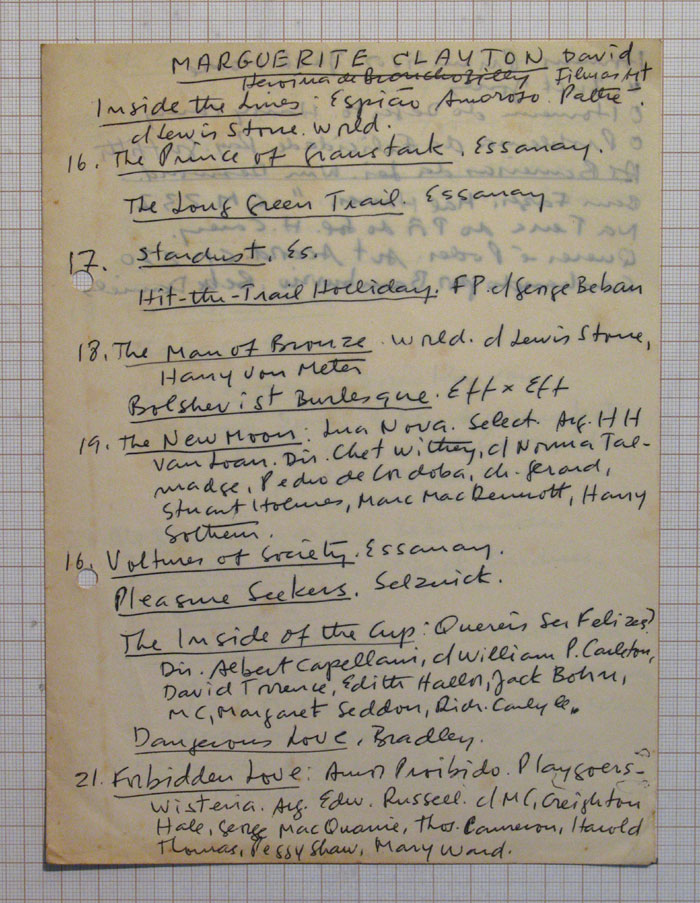 MARGUERITE CLAYTON David
Heroina de Broncho Billy Filmes Art
Inside the Lines: Espião Amoroso. Pathé.
c/ Lewis Stone. World.
16. The Prince of Graustark. Essanay.
The Long Green Trail. Essanay
17. Stardust. Es.
Hit-the-Trail Holliday. FP. c/ George Beban
18. The Man of Bronze. World. c/ Lewis Stone,
Harry Von Meter
Bolshevist Burlesque. Eff x Eff
19. The New Moon: Lua Nova. Select. Arg. H H
Van Loan. Dir. Chet Withey, c/ Norma Tal-
madge, Pedro de Cordoba, Ch. Gerard,
Stuart Holmes, Marc MacDermott, Harry
Sothern.
16. Voltures of Society. Essanay.
Pleasure Seekers. Selznick.
The Inside of the Cup: Quereis Ser Felizes?
Dir. Albert Capellani, c/ William P. Carleton,
David Torrence, Edith Hallor, Jack Bohn,
MC, Margaret Seddon, Rich. Carlyle.
Dangerous Love, Bradley.
21. Forbidden Love: Amor Proibido. Playgoers-
Wisteria. Arg. Edw. Russell. c/ MC, Creighton
Hale, George MacQuarrie, Thos. Cameron, Harold
Thomas, Peggy Shaw, Mary Ward.